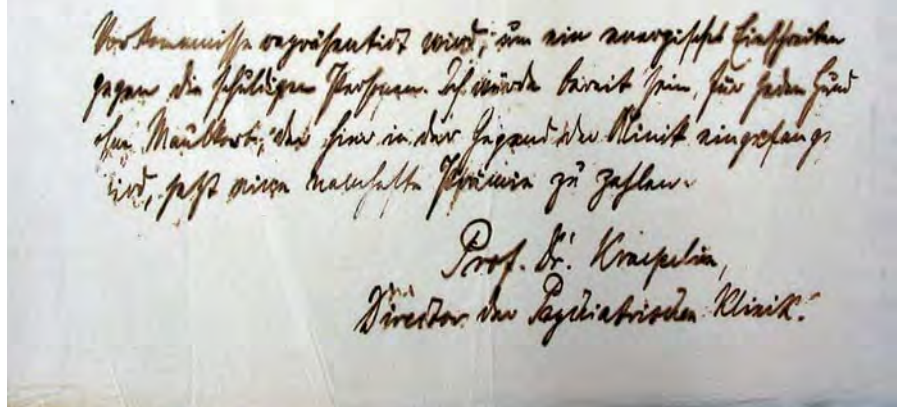 Vorkommnisse repräsentirt wird, um ein energisches Einschreiten
gegen die schuldigen Personen. Ich würde bereit sein, für jeden Hund
ohne Maulkorb, der hier in der Gegend der Klinik eingefangen
wird, selbst eine namhafte Prämie zu zahlen.
Prof. Dr. Kraepelin,
Director der Psychiatrischen Klinik.